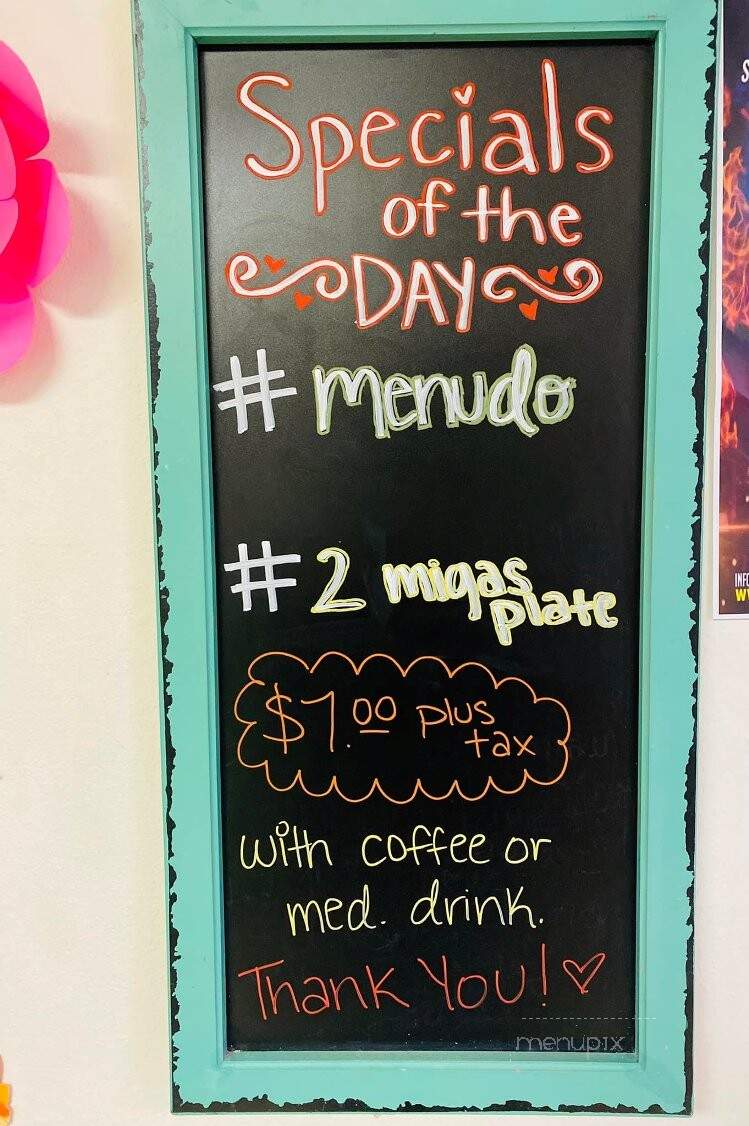 Specials
of the
DAY
# menudo
# 2 migas
plate
$7.00 plus
tax
with coffee or
med. drink.
Thank You!
menupix
INFO